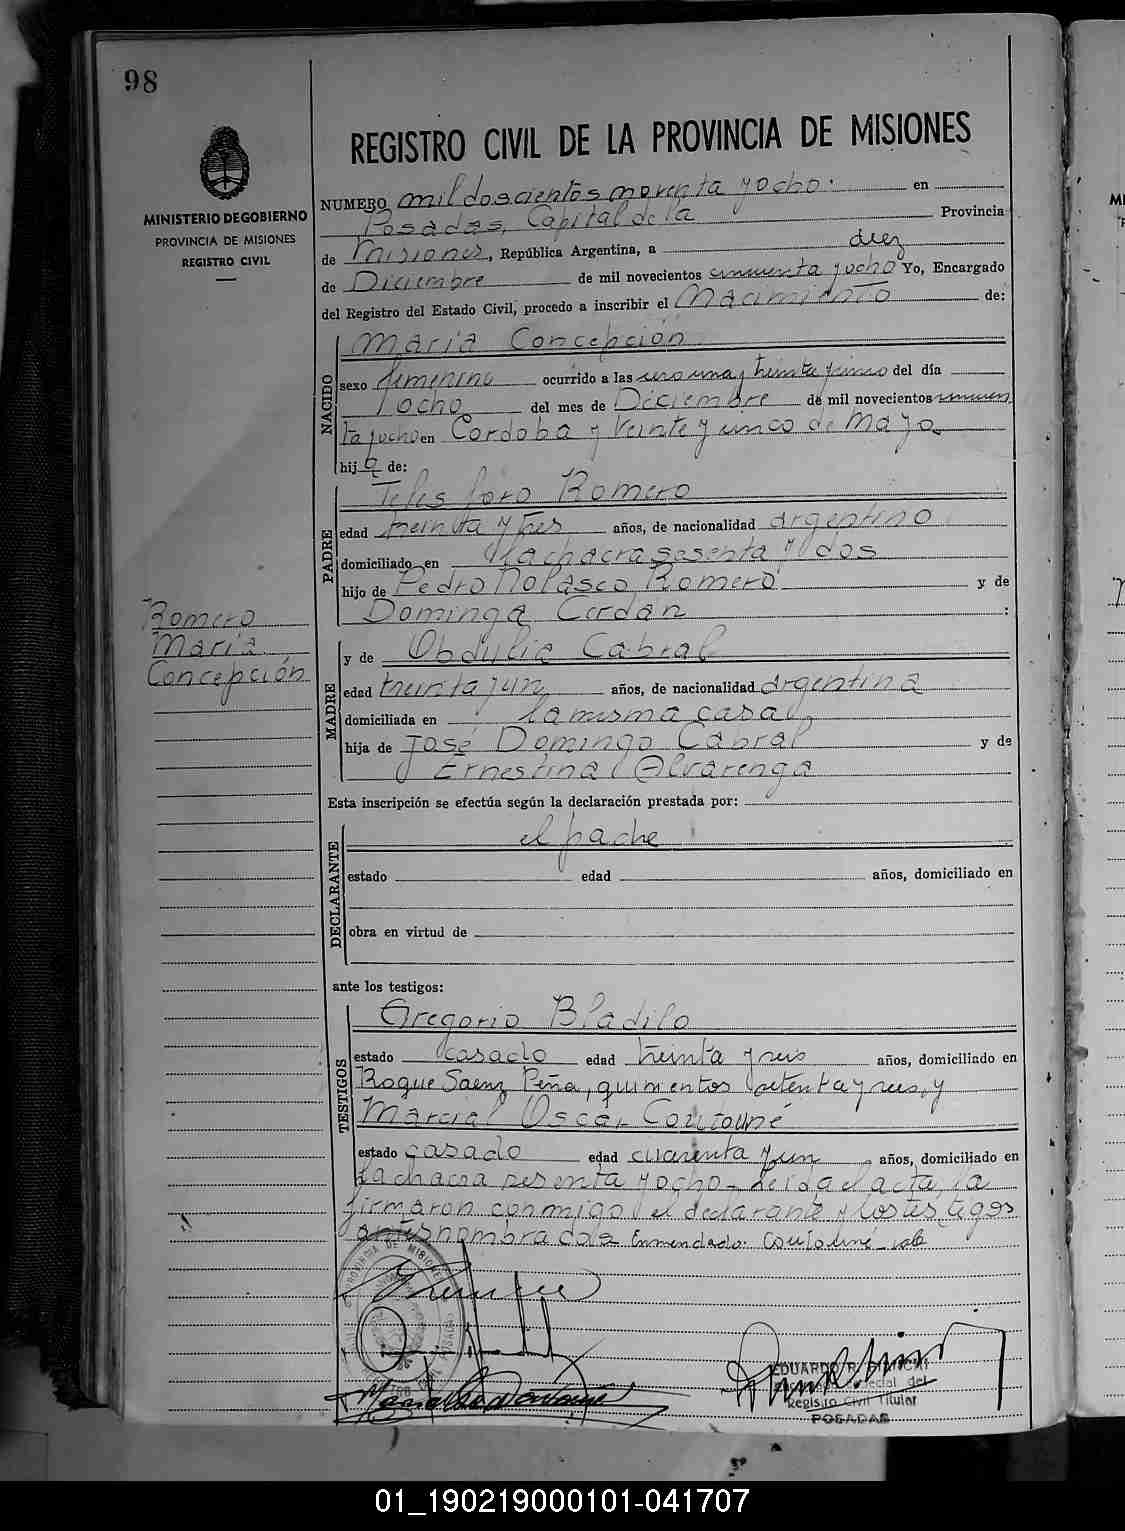 98
MINISTERIO DE GOBIERNO
PROVINCIA DE MISIONES
REGISTRO CIVIL
REGISTRO CIVIL DE LA PROVINCIA DE MISIONES
NUMERO mil doscientos noventa y ocho. en
Posadas, Capital de la Provincia
de Misiones, República Argentina, a diez
de Diciembre de mil novecientos cincuenta y ocho Yo, Encargado
del Registro del Estado Civil, procedo a inscribir el Nacimiento de:
NACIDO
María Concepción
sexo femenino ocurrido a las cero una y treinta y cinco del día
ocho del mes de Diciembre de mil novecientos cincuen
ta y ocho en Cordoba y Veinte y cinco de Mayo
hija de:
PADRE
Telesforo Romero
edad treinta y tres años, de nacionalidad argentino
domiciliado en la chacra sesenta y dos
hijo de Pedro Nolasco Romero y de
Dominga Cerdán :
Romero
María
Concepción
MADRE
y de Obdulia Cabral
edad treinta y un años, de nacionalidad argentina
domiciliada en la misma casa
hija de José Domingo Cabral y de
Ernestina Alvarenga
Esta inscripción se efectúa según la declaración prestada por:
DECLARANTE
el padre
estado edad años, domiciliado en
obra en virtud de
ante los testigos:
TESTIGOS
Gregorio Bladilo
estado casado edad treinta y seis años, domiciliado en
Roque Saenz Peña, quinientos setenta y seis, y
Marcial Oscar Coutouné
estado casado edad cuarenta y un años, domiciliado en
la chacra sesenta y ocho - Leida el acta, la
firmaron conmigo el declarante y los testigos
antes nombrados Enmendado: Coutouné - vale
PROVINCIA DE MISIONES
EDUARDO R. BIANCHI
Registro Civil Titular
POSADAS
01_190219000101-041707